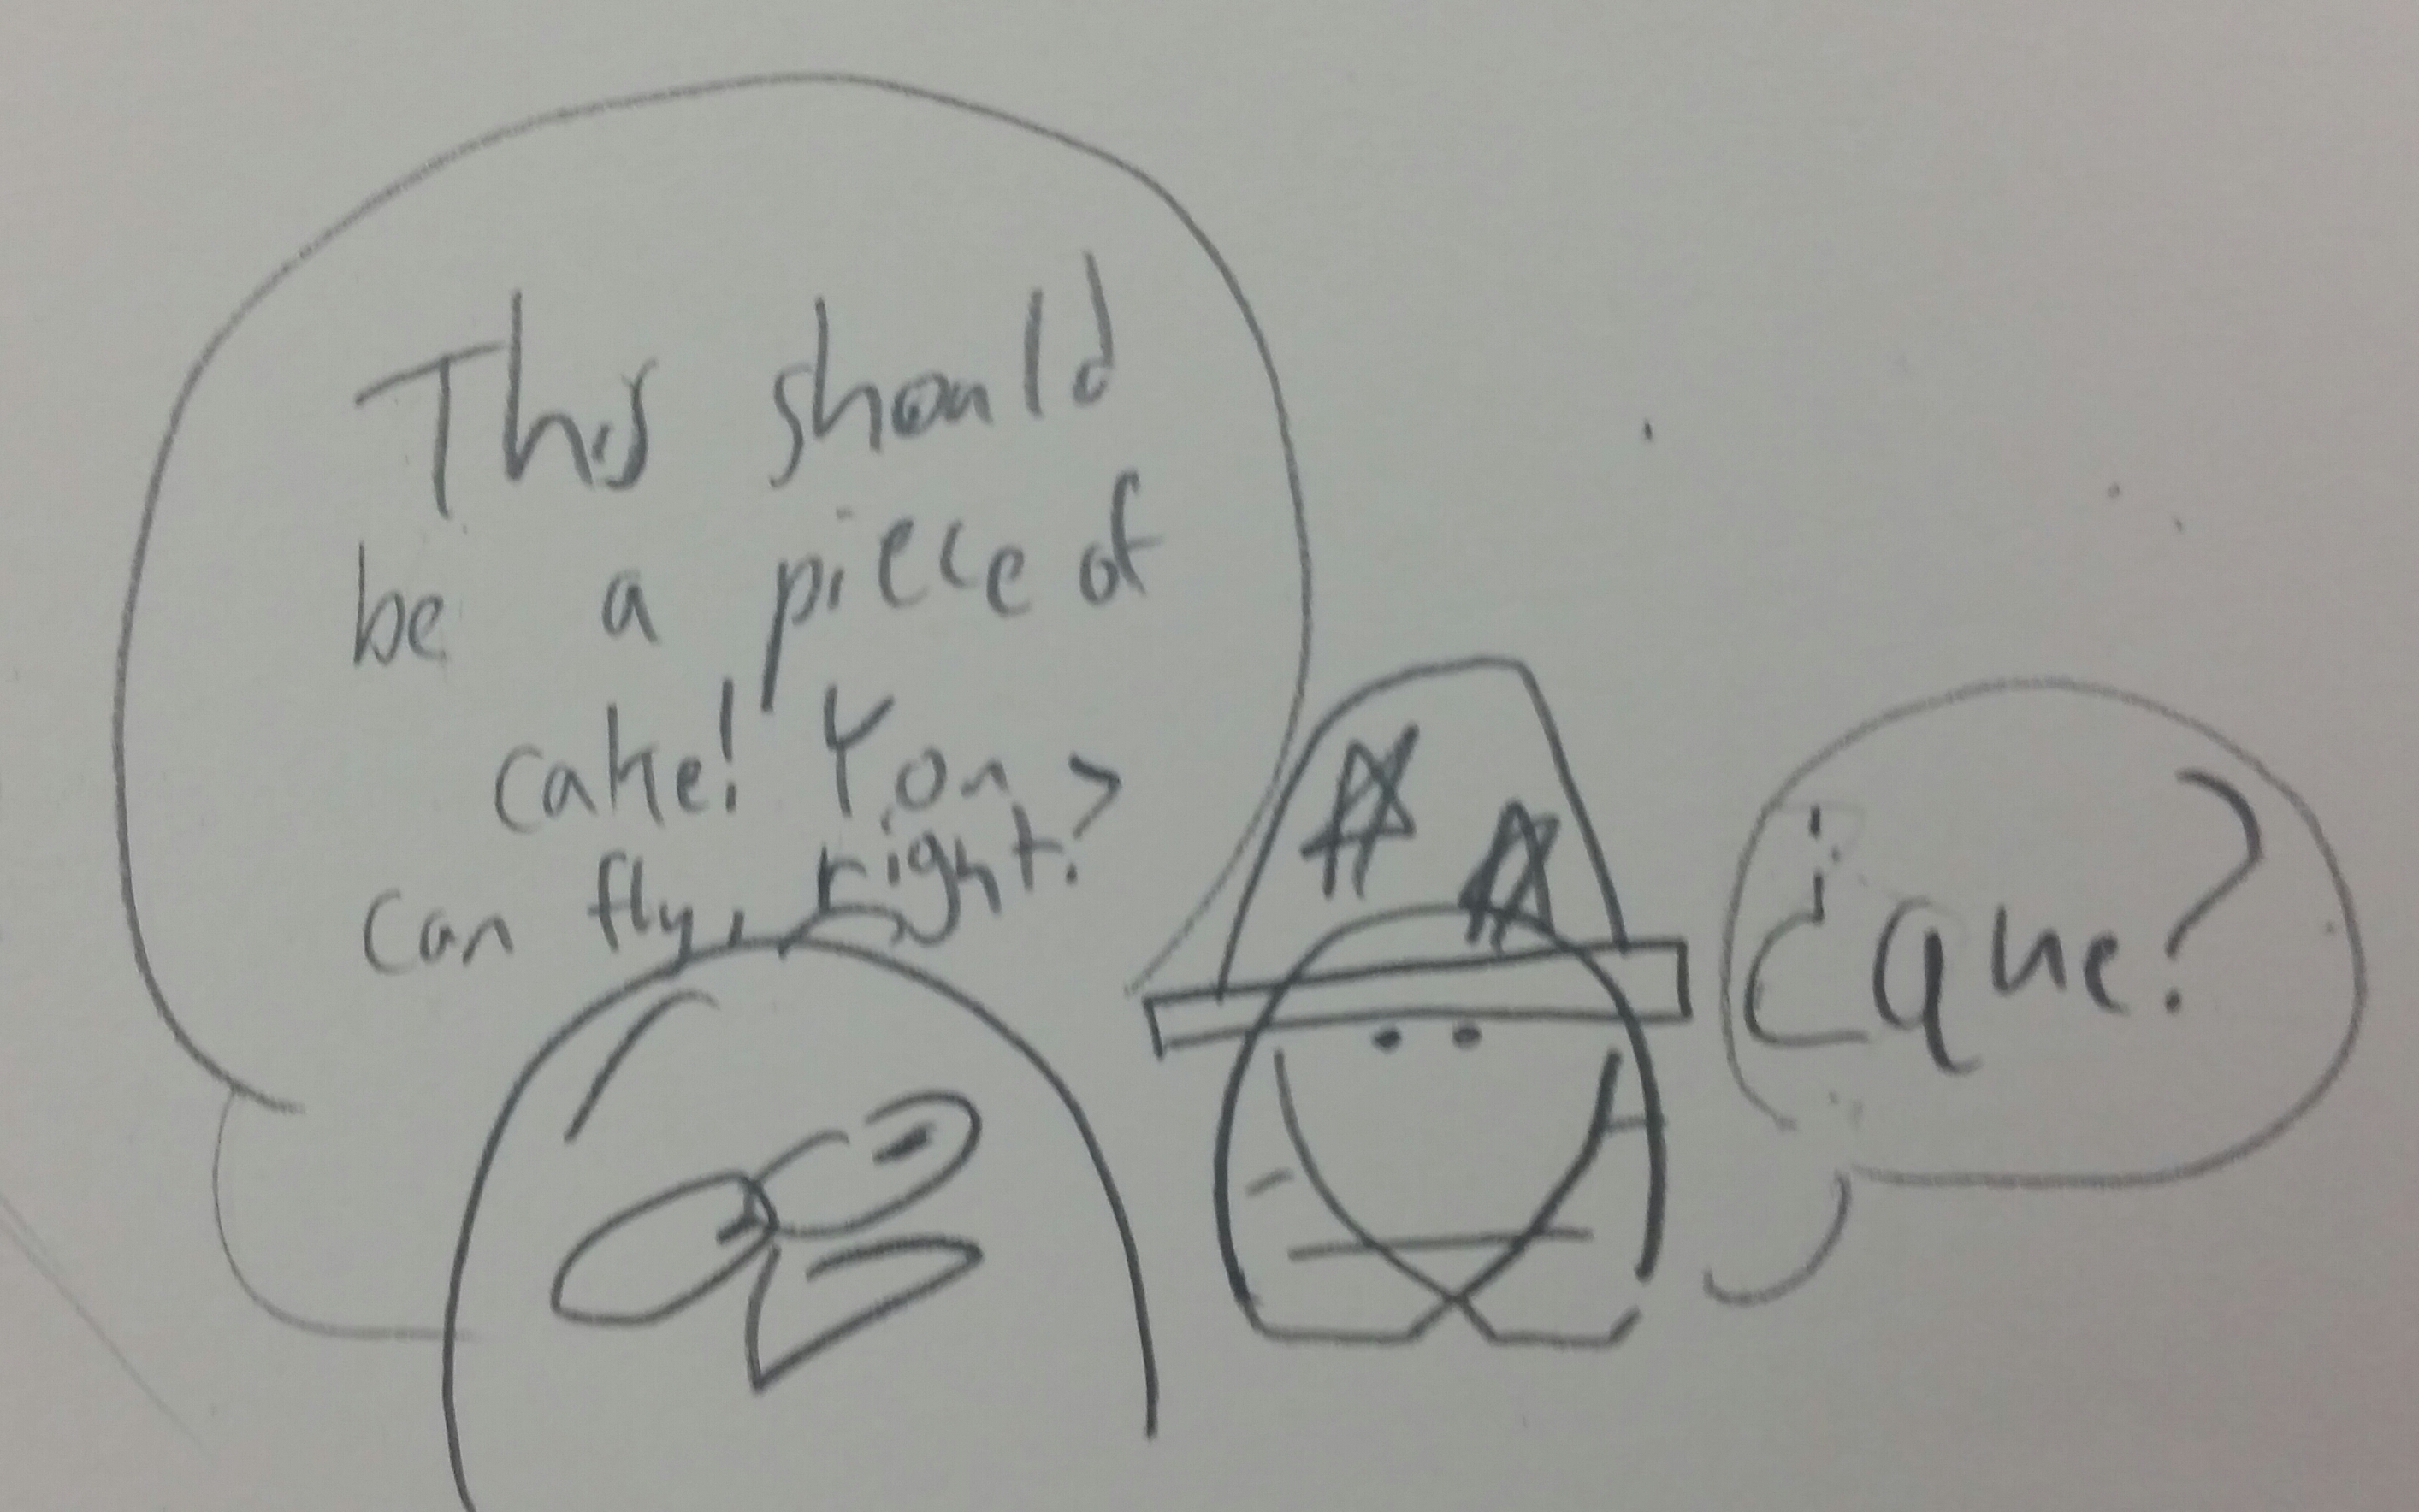 This should
be a piece of
cake! You
can fly, right?
¿que?